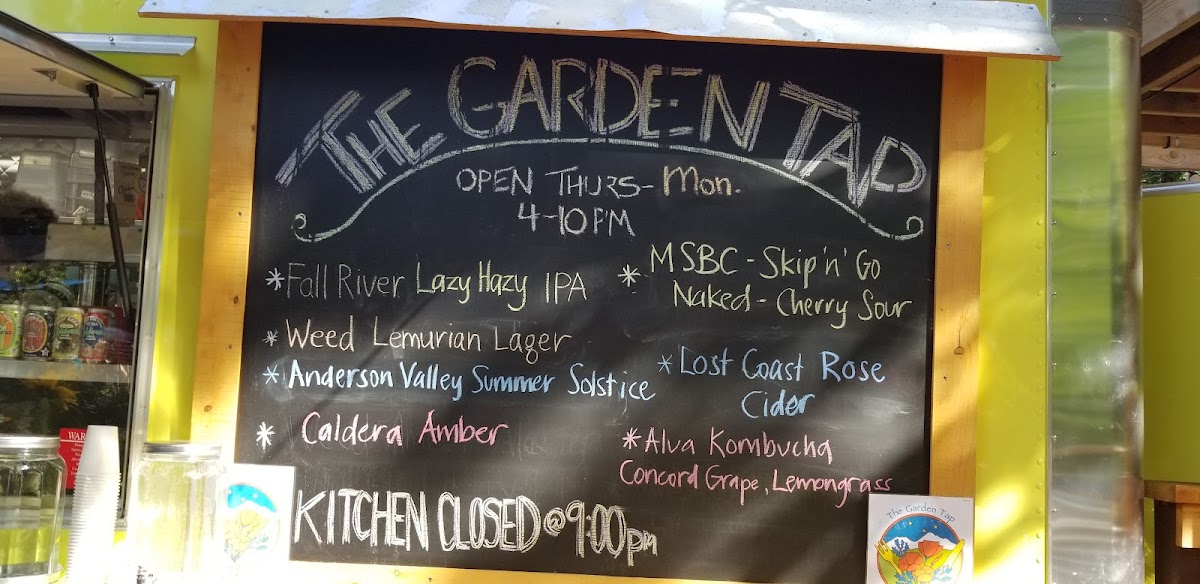 THE GARDEN TAP
OPEN THURS- Mon.
4-10PM
* Fall River Lazy Hazy IPA
* Weed Lemurian Lager
* Anderson Valley Summer Solstice
* Caldera Amber
* MSBC - Skip 'n' Go
Naked - Cherry Sour
* Lost Coast Rose
Cider
* Alva Kombucha
Concord Grape, Lemongrass
KITCHEN CLOSED @ 9:00pm
The Garden Tap